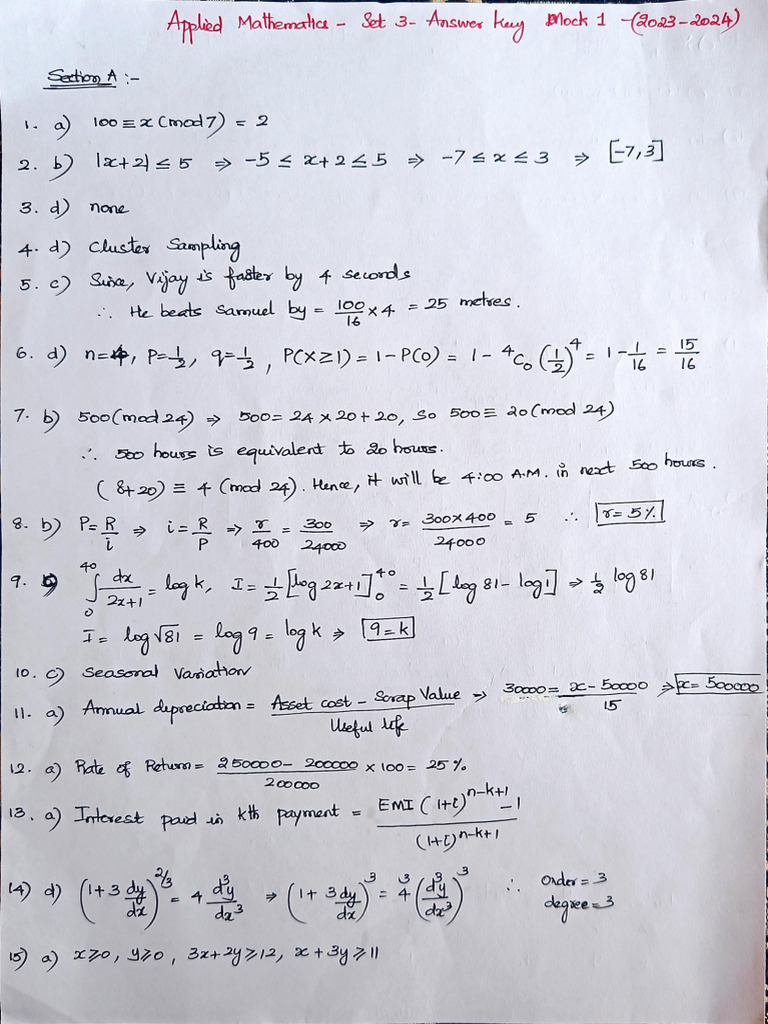 Applied Mathematics - Set 3- Answer key Mock 1 -(2023-2024)
Section A :-
1. a) 100 ≡ x (mod 7) = 2
2. b) |x+2| ≤ 5 ⇒ -5 ≤ x+2 ≤ 5 ⇒ -7 ≤ x ≤ 3 ⇒ [-7,3]
3. d) none
4. d) Cluster Sampling
5. c) Since, Vijay is faster by 4 seconds
∴ He beats Samuel by = 100/16 × 4 = 25 metres.
6. d) n=4, P=1/2, q=1/2, P(X≥1) = 1-P(0) = 1- ⁴C₀ (1/2)⁴ = 1 - 1/16 = 15/16
7. b) 500 (mod 24) ⇒ 500 = 24 × 20 + 20, So 500 ≡ 20 (mod 24)
∴ 500 hours is equivalent to 20 hours.
(8+20) ≡ 4 (mod 24). Hence, it will be 4:00 A.M. in next 500 hours.
8. b) P = R/i ⇒ i = R/P ⇒ r/400 = 300/24000 ⇒ r = 300×400/24000 = 5 ∴ r = 5%
9. ∫₀⁴⁰ dx/2x+1 = log k, I = 1/2 [log 2x+1]₀⁴⁰ = 1/2 [log 81 - log 1] ⇒ 1/2 log 81
I = log √81 = log 9 = log k ⇒ 9 = k
10. c) Seasonal Variation
11. a) Annual depreciation = Asset cost - Scrap Value/Useful life ⇒ 30000 = x - 50000/15 ⇒ x = 500000
12. a) Rate of Return = 250000 - 200000/200000 × 100 = 25 %
13. a) Interest paid in kth payment = EMI (1+i)ⁿ⁻ᵏ⁺¹ - 1/(1+i)ⁿ⁻ᵏ⁺¹
14) d) (1 + 3 dy/dx)^2/3 = 4 d³y/dx³ ⇒ (1 + 3 dy/dx)³ = 4³ (d³y/dx³)³ ∴ Order = 3
degree = 3
15) a) x ≥ 0, y ≥ 0, 3x + 2y ≥ 12, x + 3y ≥ 11